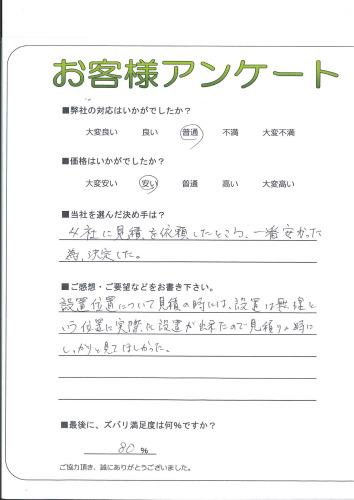 お客様アンケート
■弊社の対応はいかがでしたか?
大変良い 良い 普通 不満 大変不満
■価格はいかがでしたか?
大変安い 安い 普通 高い 大変高い
■当社を選んだ決め手は?
4社に見積を依頼したところ、一番安かった
為、決定した。
■ご感想・ご要望などをお書き下さい。
設置位置について見積の時には、設置は無理と
いう位置に実際に設置が出来たので見積りの時に
しっかりと見てほしかった。
■最後に、ズバリ満足度は何%ですか?
80 %
ご協力頂き、誠にありがとうございました。